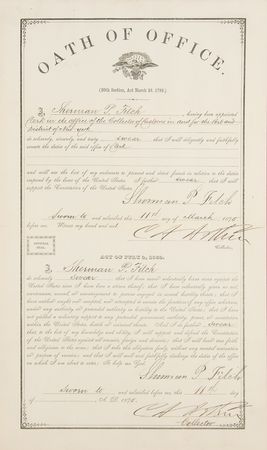 OATH OF OFFICE.
(20th Section, Act March 2d, 1799.)
I, Sherman P. Fitch, having been appointed
Clerk in the office of the Collector of Customs in and for the Port and
District of New York
do solemnly, sincerely, and truly swear that I will diligently and faithfully
execute the duties of the said office of Clerk
and will use the best of my endeavors to prevent and detect frauds in relation to the duties
imposed by the laws of the United States. I further swear that I will
support the Constitution of the United States.
Sherman P Fitch
Sworn to and subscribed this 11th day of March 1878
before me. Witness my hand and seal.
Collector.
OFFICIAL
SEAL
ACT OF JULY 2, 1862.
I, Sherman P. Fitch
do solemnly swear that I have never voluntarily borne arms against the
United States since I have been a citizen thereof; that I have voluntarily given no aid,
countenance, counsel, or encouragement to persons engaged in armed hostility thereto; that I
have neither sought nor accepted, nor attempted to exercise the functions of any office whatever,
under any authority or pretended authority in hostility to the United States; that I have
not yielded a voluntary support to any pretended government, authority, power, or constitution
within the United States, hostile or inimical thereto. And I do further swear
that, to the best of my knowledge and ability, I will support and defend the Constitution
of the United States against all enemies, foreign and domestic; that I will bear true faith
and allegiance to the same; that I take this obligation freely, without any mental reservation
or purpose of evasion; and that I will well and faithfully discharge the duties of the office
on which I am about to enter. So help me God.
Sherman P Fitch
Sworn to and subscribed before me this 11th day
of A.D. 1878.
Collector